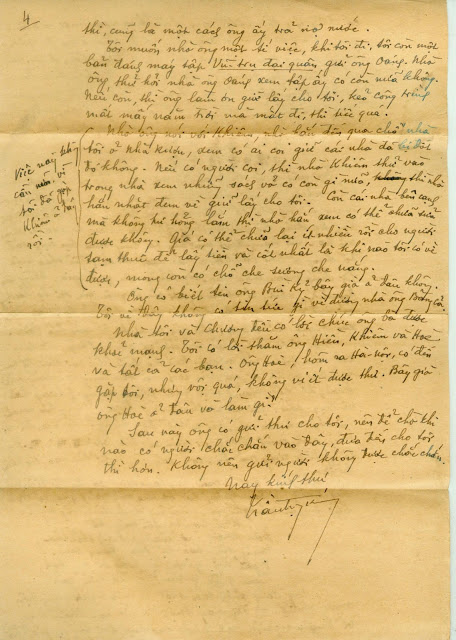 4
thì, cũng là một cách ông ấy trả nợ nước.
Tôi muốn nhờ ông một tí việc, khi tôi đi, tôi còn một
bản đáng máy tập Vũ-trụ đại quan gửi ông Oang. Nhờ
ông thử hỏi nhà ông Oang xem tập ấy có còn nữa không.
Nếu còn, thì ông làm ơn giữ lấy cho tôi, kẻo công trình
mất mấy năm trời mà mất đi, thì tiếc quá.
Nhờ ông nói với Khiêm đến qua chỗ nhà
tôi ở Nhà Rượu, xem có ai coi giữ cái nhà đó
đó không. Nếu có người coi, thì nhờ Khiêm thử vào
trong nhà xem những sách vở có còn gì nữa, thì nhờ
hắn nhặt đem về giữ lấy cho tôi. Còn cái nhà bên cạnh
mà không hư hỏng lắm thì nhờ hắn xem có thể chữa
được không. Giá có thể chữa lại ít nhiều rồi cho người
ta thuê để lấy tiền và cốt nhất là khi nào tôi có về
được, mong còn có chỗ che sương che nắng.
Ông có biết tin ông Bùi Kỷ bây giờ ở đâu không.
Tôi về đây không có tin tức gì về đường nhà ông
Nhà tôi và Chương đều có lời chúc ông bà được
khoẻ mạnh. Tôi có lời thăm ông Hiên, Khiêm và Hoè
và tất cả các bạn. Ông Hoè, hôm ra Hà-nội, có đến
gặp tôi, nhưng vội quá, không viết được thư. Bây giờ
ông Hoè ở đâu và làm gì?
Sau này ông có gửi thư cho tôi, nên để chờ khi
nào có người chắc chắn vào đây, đưa đến cho tôi
thì hơn. Không nên gửi người không được chắc chắn.
Nay kính thư
Việc này
cần nói với
Khiêm
rồi.